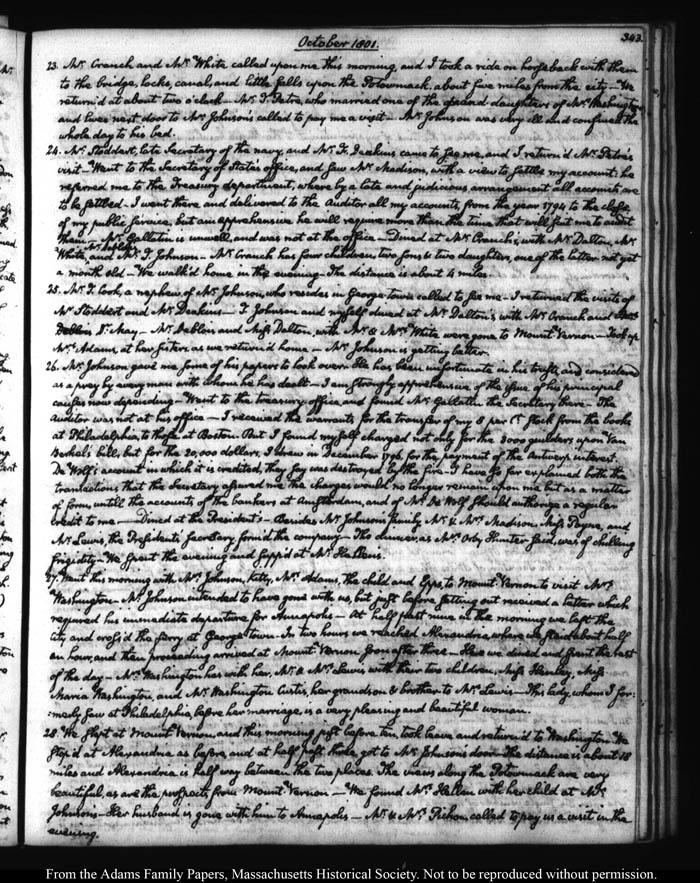 October 1801.
343
23. Mr. Cranch and Mr. White called upon me this morning, and I took a ride on horseback with them
to the bridge, locks, canal, and little falls upon the Potowmack, about five miles from the city — We
return'd at about two o'clock — Mr. T. Petre, who married one of the grand daughters of Mrs. Washington
and lives next door to Mr. Johnson's called to pay me a visit — Mr. Johnson was very ill and confined the
whole day to his bed.
24. Mr. Stoddert, late Secretary of the navy, and Mr. F. Deakins came to see me, and I return'd Mr. Petre's
visit — Went to the Secretary of State's office, and saw Mr. Madison, with a view to settle my account: he
referred me to the Treasury department, where by a late and judicious arrangement all accounts are
to be settled. I went there and delivered to the Auditor all my accounts, from the year 1794 to the close
of my public service, but am apprehensive he will require more than the time that will suit me to audit
them — Mr. Gallatin is unwell, and was not at the office — Dined at Mr. Cranch's, with Mr. Dalton, Mr.
White, and Mr. T. Johnson — Mr. Cranch has four children, two sons & two daughters, one of the latter not yet
a month old — We walk'd home in the evening — The distance is about 4 miles.
25. Mr. Cook, a nephew of Mr. Johnson, who resides in George town called to see me — I returned the visits of
Mr. Stoddert and Mr. Deakins — T. Johnson and myself dined at Mr. Dalton's, with Mr. Cranch and
Dr. May — Mr. Deblois and Miss Dalton, with Mr. & Mrs. White were gone to Mount Vernon — Took up
Mrs. Adams, at her sisters, as we return'd home — Mr. Johnson is getting better.
26. Mr. Johnson gave me some of his papers to look over — He has been unfortunate in his trusts, and considered
as a prey by every man with whom he has dealt — I am strongly apprehensive of the issue of his principal
causes now depending — Went to the treasury office, and found Mr. Gallatin the Secretary there — The
Auditor was not at his office — I received the warrants for the transfer of my 8 per Ct. stock from the books
at Philadelphia, to those at Boston. But I found myself charged not only for the 3000 guilders upon Van
Berkel's bill, but for the 20,000 dollars, I drew in December 1796, for the payment of the Antwerp interest.
De Wolf's account in which it is credited, they say was destroyed by the fire. I have so far explained both the
transactions, that the Secretary assured me the charges would no longer remain upon me but as a matter
of form, untill the accounts of the bankers at Amsterdam, and of Mr. De Wolf should authorize a regular
credit to me — Dined at the President's — Besides Mr. Johnson's family Mr. & Mrs. Madison, Miss Payne, and
Mr. Lewis, the President's Secretary, form'd the company — The dinner, as Mr. Orby Hunter said, was of chilling
frigidity — We spent the evening and supp'd at Mr. Hellens.
27. Went this morning with Mrs. Johnson, Kitty, Mrs. Adams, the child and Epps, to Mount Vernon to visit Mrs.
Washington — Mr. Johnson intended to have gone with us, but just before setting out received a letter which
required his immediate departure for Annapolis — At half past nine in the morning we left the
city and cross'd the ferry at George town. In two hours we reached Alexandria, where we staid about half
an hour, and then proceeding arrived at Mount Vernon soon after three — Here we dined and spent the rest
of the day — Mrs. Washington has with her, Mr. & Mrs. Lewis with their two children, Miss Henley, Miss
Maria Washington, and Mr. Washington Custis, her grandson & brother to Mrs. Lewis — This lady, whom I for-
merly saw at Philadelphia, before her marriage, is a very pleasing and beautiful woman.
28. We slept at Mount Vernon, and this morning just before ten, took leave and return'd to Washington. We
stop'd at Alexandria as before, and at half past three got to Mr. Johnson's door. The distance is about 18
miles and Alexandria is half way between the two places. The views along the Potowmack are very
beautiful, as are the prospects from Mount Vernon — We found Mrs. Hellen with her child at Mr.
Johnson's — Her husband is gone with him to Annapolis — Mr. & Mrs. Pichon, called to pay us a visit in the
evening.
From the Adams Family Papers, Massachusetts Historical Society. Not to be reproduced without permission.